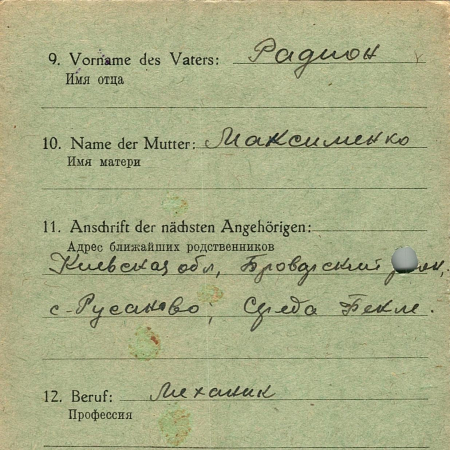 9. Vorname des Vaters: Радион
Имя отца
10. Name der Mutter: Максименко
Имя матери
11. Anschrift der nächsten Angehörigen:
Адрес ближайших родственников
Киевская обл, Броварский
с-Русаново, Середа Текле.
12. Beruf: Механик
Профессия